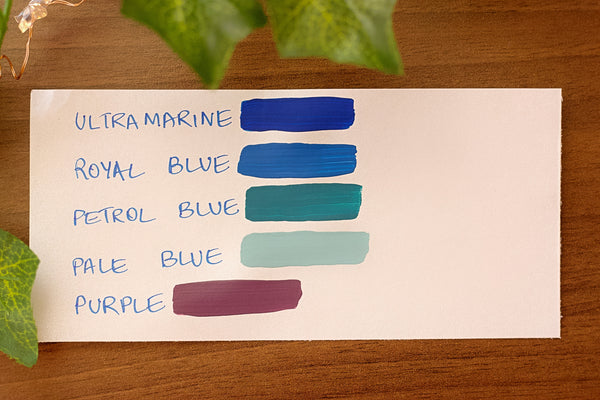 ULTRAMARINE
ROYAL BLUE
PETROL BLUE
PALE BLUE
PURPLE